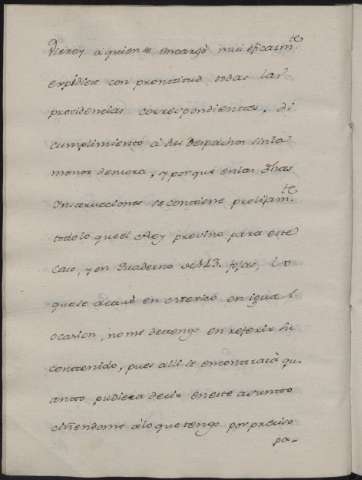 Virrey a quien se encargò mui eficazm.te
expidiese con prontitud todas las
providencias correspondientes, di
cumplimiento à su Despacho sin la
menor demora, y porque en las dhas
Instrucciones se contiene prolijam.te
todo lo que el Rey previno para este
caso, y en Quaderno de 143. fojas, lo
que se actuò en Interiso en igual
ocasion, no me detengo en referir su
contenido, pues alli se encontrarà qu-
anto pudiera decir en este assunto
ciñendome à lo que tengo por preciso
pa-